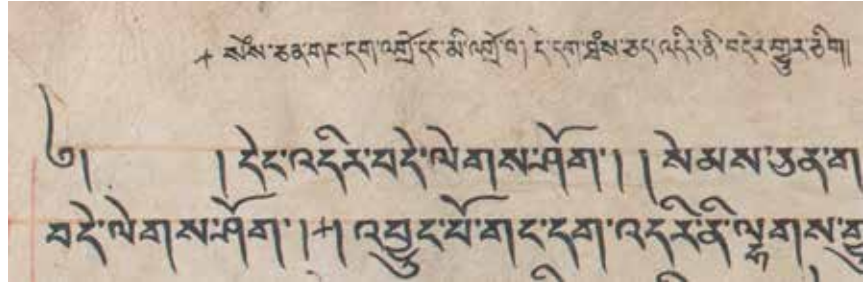 + སེཾས་ཅན་གང་དག་འགྲོ་དང་མི་འགྲོ་བ། དེ་དག་ཐཾས་ཅད་འདིར་ནི་བདེར་གྱུར་ཅིག།
༄། །དེང་འདིར་བདེ་ལེགས་ཤོག་། །སེམས་ཅན་ག
བདེ་ལེགས་ཤོག་།+། འབྱུང་པོ་གང་དག་འདིར་ནི་ལྷགས་གྱུ